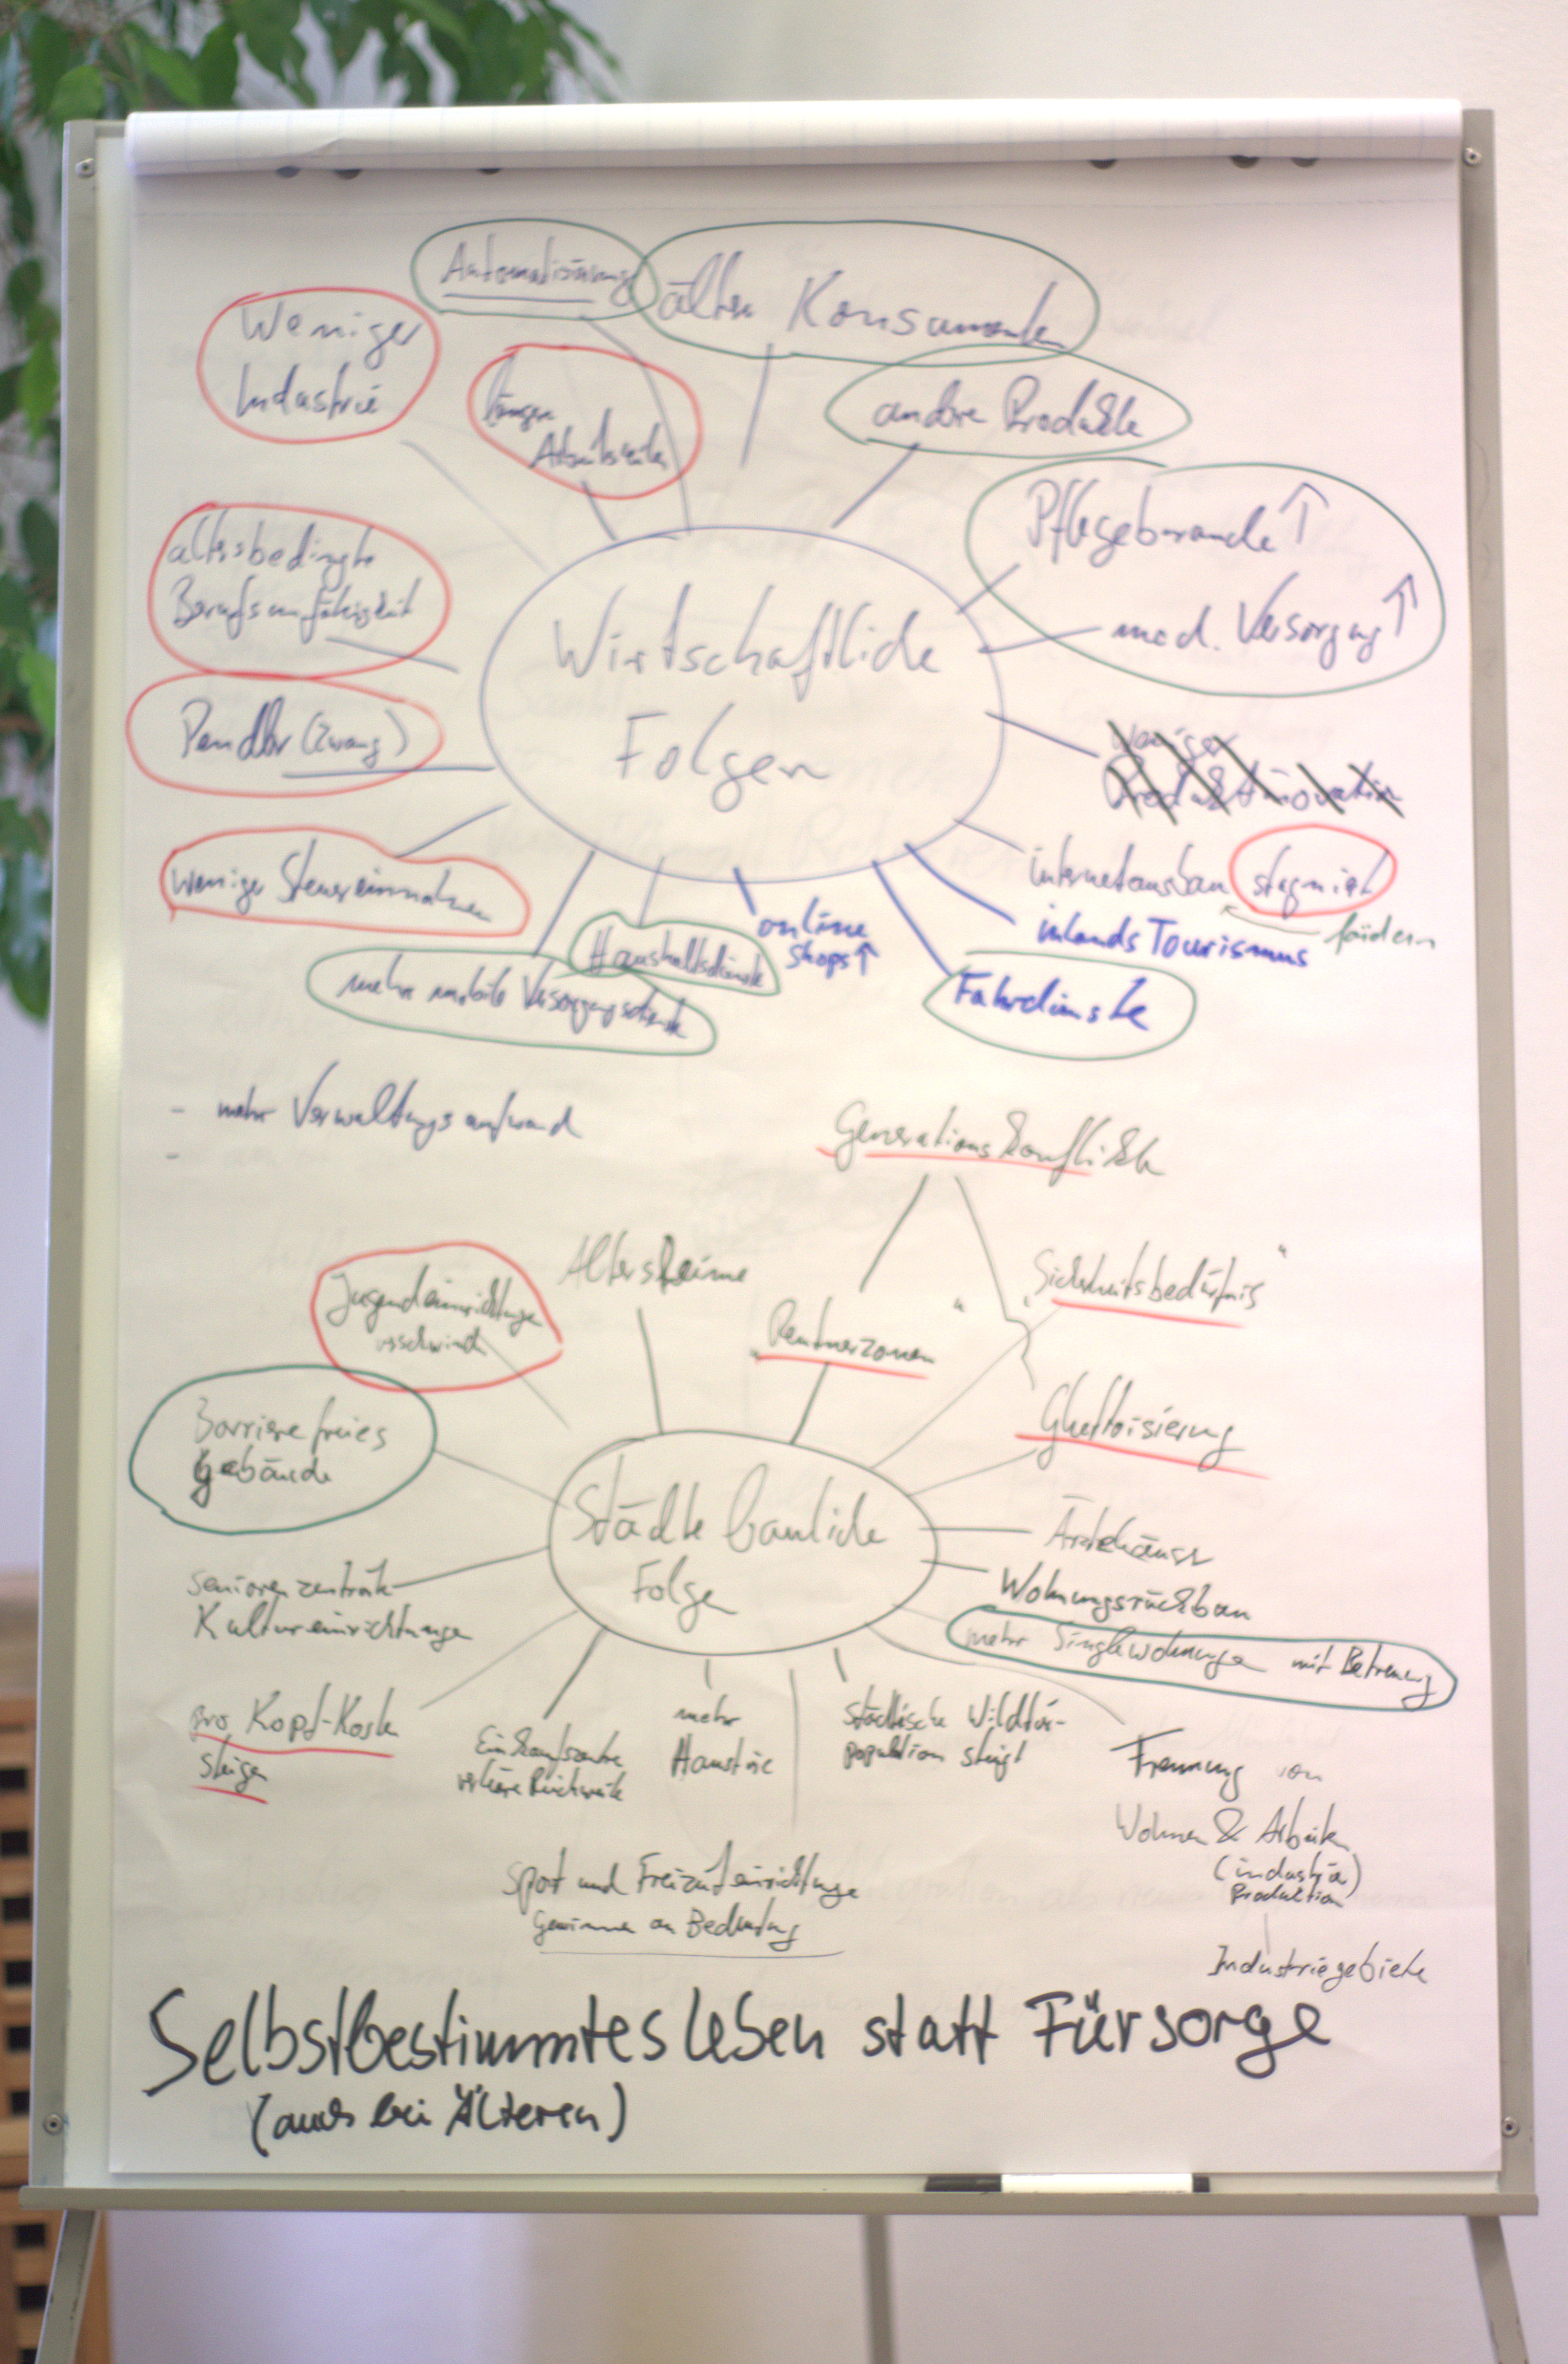 Automatisierung
ältere Konsumenten
Weniger
Industrie
länger
Arbeiten
andere Produkte
Pflegebranche ↑
med. Versorgung ↑
altersbedingte
Berufsunfähigkeit
Wirtschaftliche
Folgen
Pendler (zwang)
weniger
Produktinnovation
weniger Steuereinnahmen
internetausbau stagniert
fördern
Haushaltsdienste
online
shops ↑
inlands Tourismus
mehr mobile Versorgungsdienste
Fahrdienste
- mehr Verwaltungsaufwand
-
Generationskonflikte
Altersheime
"Sicherheitsbedürfnis"
Jugendeinrichtungen
verschwinden
"Rentnerzonen"
Ghettoisierung
Barrierefreies
gebäude
Städtebauliche
Folgen
Ärztehäuser
Wohnungsrückbau
seniorenzentrale
Kultureinrichtungen
mehr Singlewohnungen mit Betreuung
pro Kopf-Kosten
steigen
Einkaufszentren
mehr
Haustiere
städtische Wildtier-
population steigt
Trennung von
Wohnen & Arbeiten
(industrie)
Produktion
Industriegebiete
Sport und Freizeiteinrichtungen
Gewinnen an Bedeutung
Selbstbestimmtes leben statt Fürsorge
(auch bei Älteren)